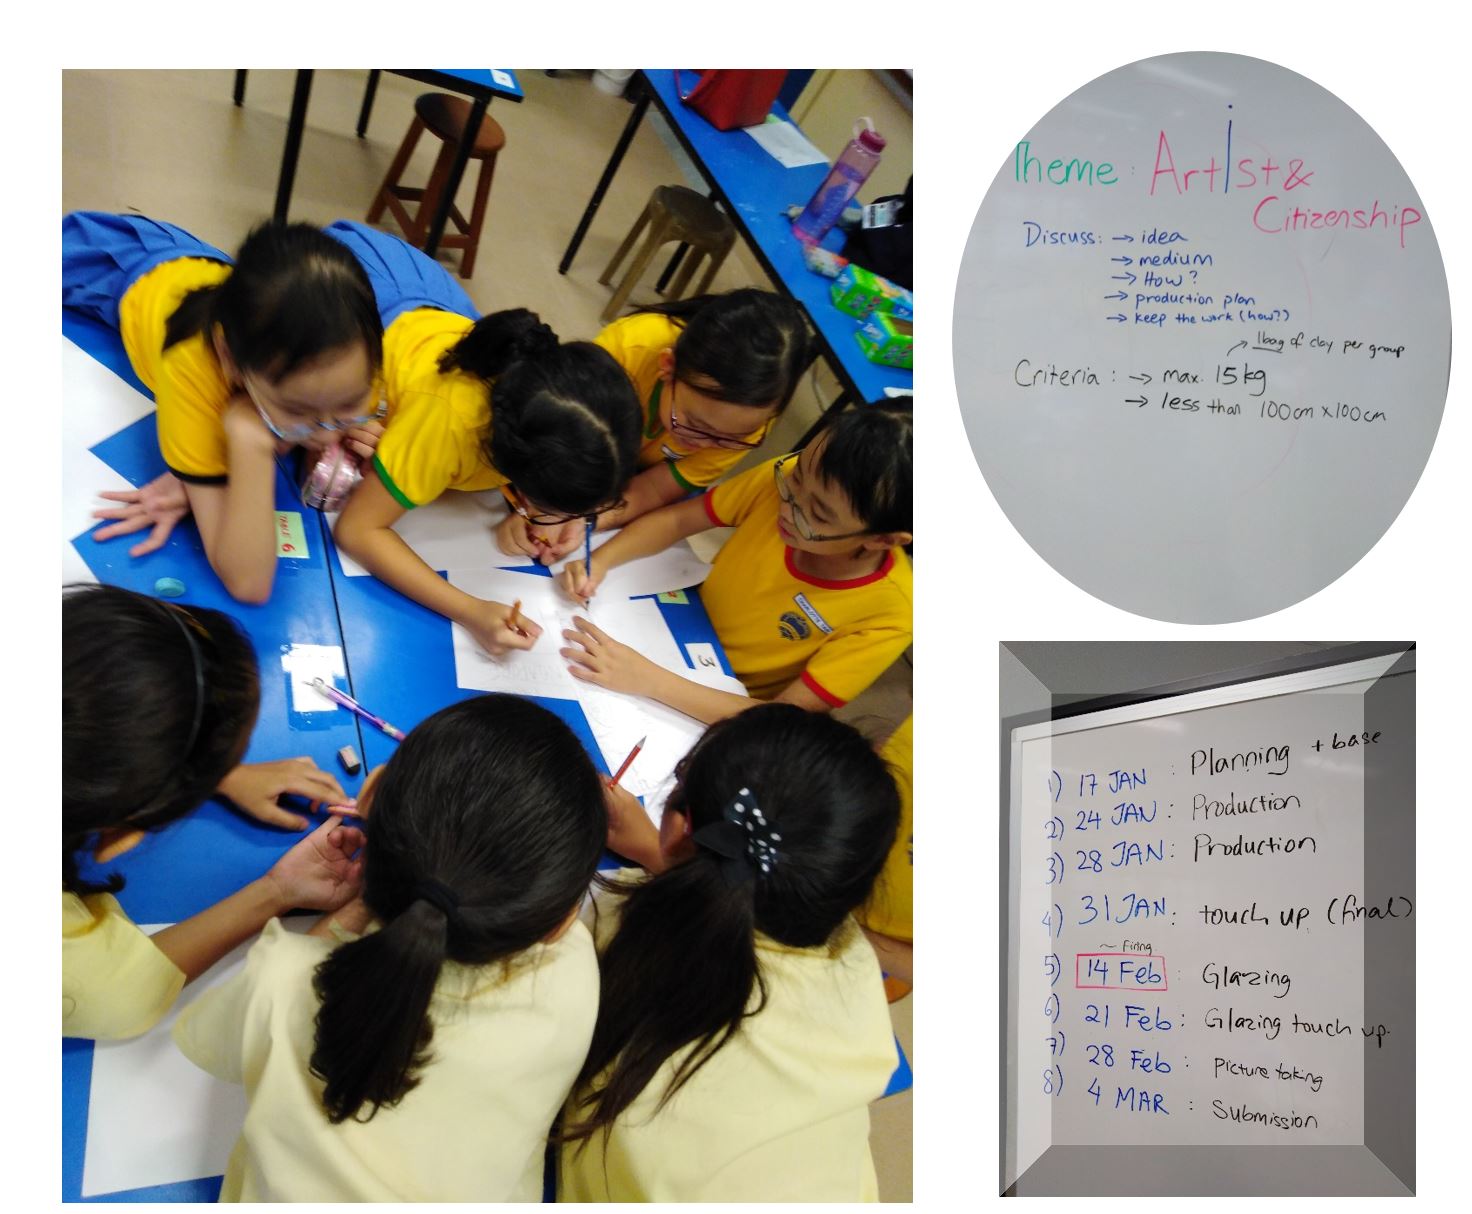 Theme : Artist &
Citizenship
Discuss: → idea
→ medium
→ How?
→ production plan
→ keep the work (how?)
→ 1 bag of clay per group
Criteria : → max. 15kg
→ less than 100cm x 100cm
1) 17 JAN : Planning + base
2) 24 JAN : Production
3) 28 JAN : Production
4) 31 JAN : touch up (final)
~ Firing
5) 14 Feb : Glazing
6) 21 Feb : Glazing touch up.
7) 28 Feb : Picture taking
8) 4 MAR : Submission
TABLE 6
3